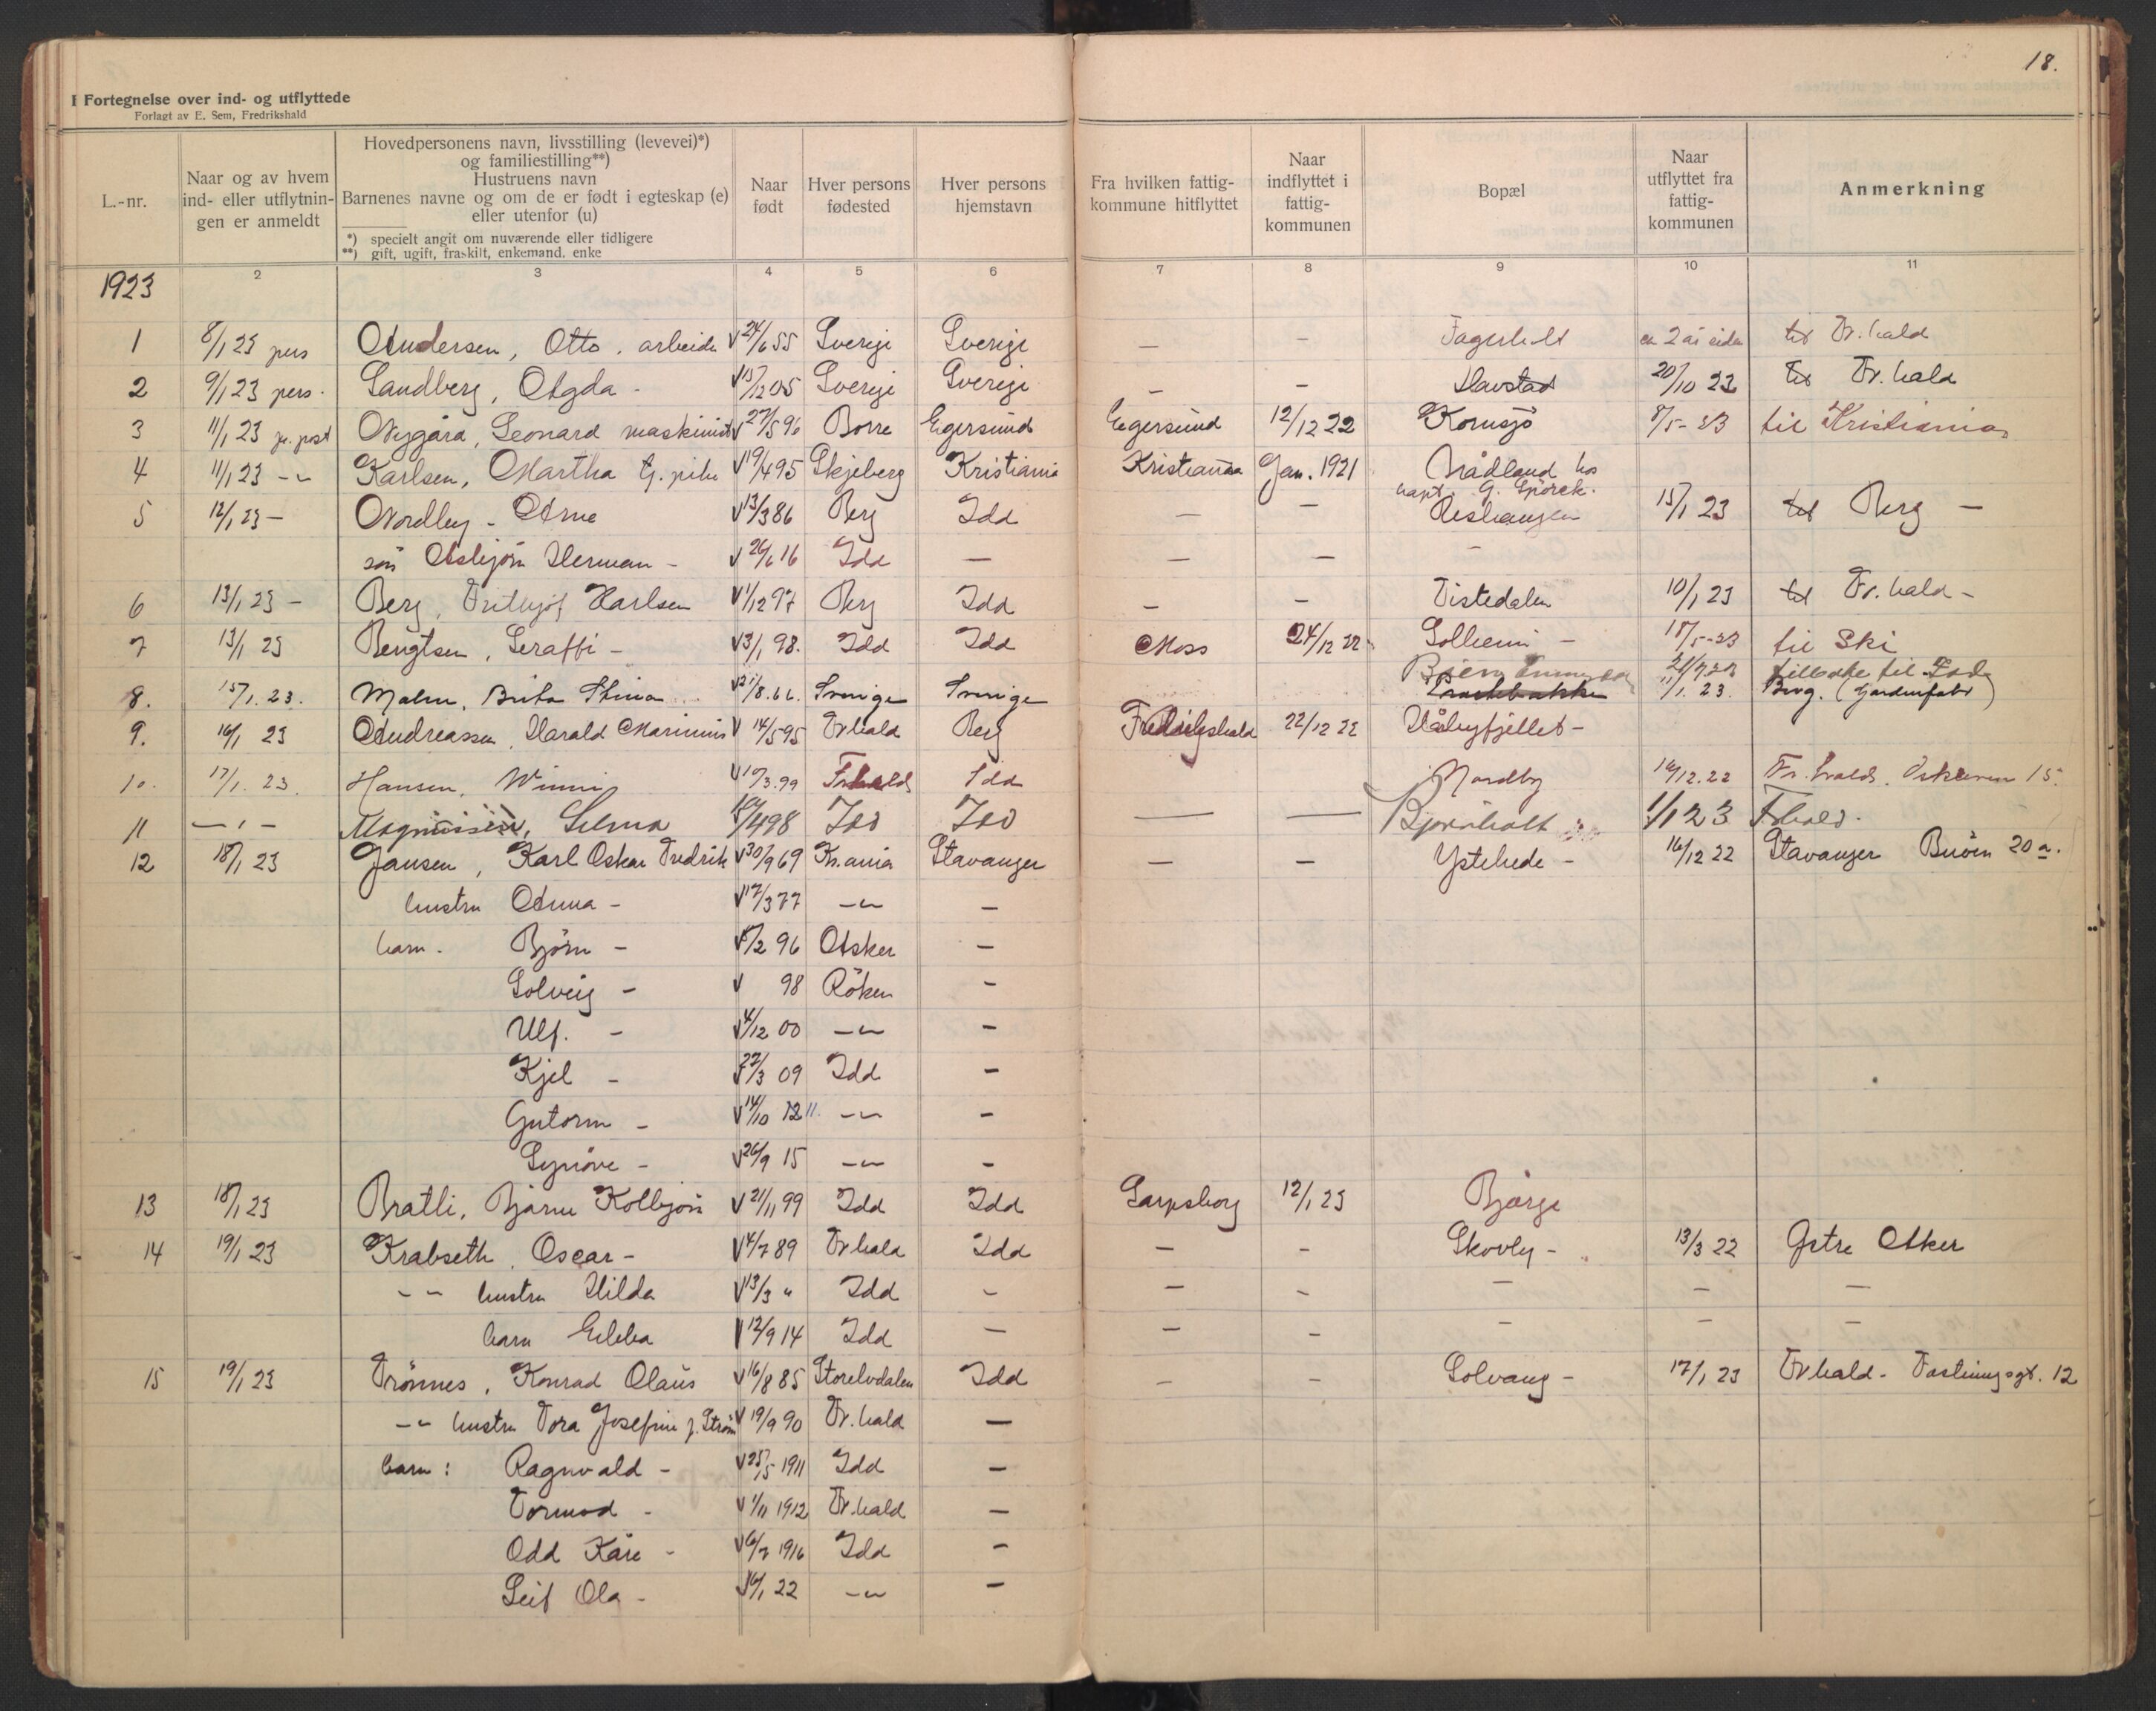 18.
Fortegnelse over ind- og utflyttede
Forlagt av E. Sem, Fredrikshald
L.-nr.
Naar og av hvem ind- eller utflytnin-gen er anmeldt
Hovedpersonens navn, livsstilling (levevei)*) og familiestilling**) Hustruens navn Barnenes navne og om de er født i egteskap (e) eller utenfor (u)
*) specielt angit om nuværende eller tidligere
**) gift, ugift, fraskilt, enkemand. enke
Naar født
Hver persons fødested
Hver persons hjemstavn
Fra hvilken fattig-kommune hitflyttet
Naar indflyttet i fattig-kommunen
Bopæl
Naar utflyttet fra fattig-kommunen
Anmerkning
1923 2 3 4 5 6 7 8 9 10 11
1 8/1 23 pers Andersen, Otto. arbeide V 24/6 55 Sverige Sverige — – Fagerholt ca 2 år siden til Fr.hald
2 9/1 23 pers. Sandberg, Agda - V 15/12 05 Sverige Sverige – – Havstad 20/10 22 til Fr.hald
3 11/1 23 pr. post Nygård, Leonard maskinist V 27/5 96 Borre Egersund Egersund 12/12 22 Kornsjø 8/5-23 til Kristiania
4 11/1 23 -"- Karlsen, Martha tj. pike V 19/4 95 Skjeberg Kristiania Kristiania Jan. 1921 Nådland hos kapt. G. Spörck.
5 12/1 23 – Nordby - Arne V 13/3 86 Berg Idd – – 15/1 23 til Berg –
søn Asbjørn Herman – V 26/6 16 Idd — – – –
6 13/1 23 – Berg, Frithjof Karlsen V 1/12 97 Berg Idd – – Tistedalen 10/1 23 til Fr.hald –
7 13/1 23 Bengtsen, Seraffi – V 3/1 98. Idd Idd Moss 24/12 22 Solheim – 18/5-23 til Ski
8. 15/1. 23. Malm, Brita Stina V 21/8. 66. Sverige Sverige 11/1. 23. tilbake til Idd Berg.
9. 16/1 23 Andreassen, Harald Marinius V 14/5 95 Fr.hald Berg Fredrikshald 22/12 22 Håbyfjellet –
10. 17/1. 23. Hansen, Winni V 10/3. 99 Frhald Idd Nordby 16/12. 22 Fr.hald. 15.
11 – " – Magnussen, Selma 10/4 98 Idd Idd — — Bjørnholt 1/1 23 Fhald.
12 18/1 23 Jansen, Karl Oskar Fredrik V 30/9 69 Kr.ania Stavanger – – Ystehede – 16/12 22 Stavanger Buöen 20 a.
hustru Anna – V 17/3 77 –"– –
barn. Bjørn – V 5/2 96 Asker –
Solveig – V 98 Röken –
Ulf. – V 4/12 00 –"– –
Kjel – 27/3 09 Idd –
Gutorm – V 14/10 12 11. –"– –
Synöve – V 26/9 15 –"– –
13 18/1 23 Bratli, Bjarne Kolbjørn V 21/11 99 Idd Idd Sarpsborg 12/1 23 Bjørge
14 19/1 23 Krabseth, Oscar – V 4/7 89 Fr.hald Idd – – Skovly – 13/3 22 Østre Aker
–"– hustru Hilda V 13/3 " Idd – – – – – –
barn Ebba V 12/9 14 Idd – – – – – –
15 19/1 23 Trönnes, Konrad Olaus V 16/8 85 Storelvdalen Idd – – Solvang – 17/1 23 Fr.hald. 12
–"– hustru Tora Josefine f. Strøm V 19/9 90 Fr.hald –
barn: Ragnvald – V 25/5 1911 Idd –
Tormod – V 1/11 1912 Fr.hald –
Odd Kåre – V 6/7 1916 Idd –
Leif Ola – V 6/1 22 –"– –